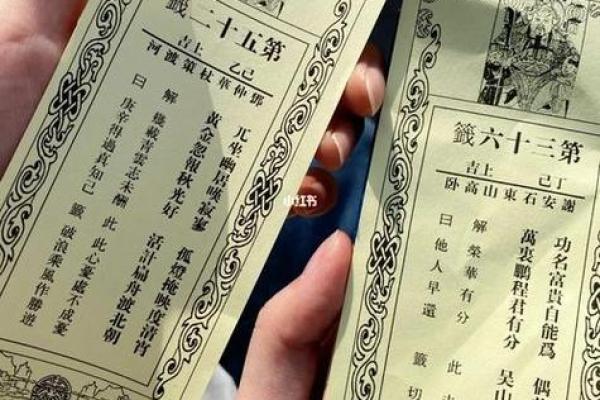 第五十二籤
己乙 上吉
鄧仲華杖策渡河
兀坐幽居嘆寂寥 孤燈掩映度清宵
黃金忽報秋光好 活計扁舟渡北朝
解 穩載青雲志未酬 此 此心憂處不成憂
曰 庚辛得過真知己 籤 破浪乘風作勝遊
第三十六籤
丁己 上吉
謝安石東山高卧
功名富貴自能爲 偶
萬裏鵬程君有分 吳山
解 榮華有分 此
曰 他人早還 籤 切
小红书